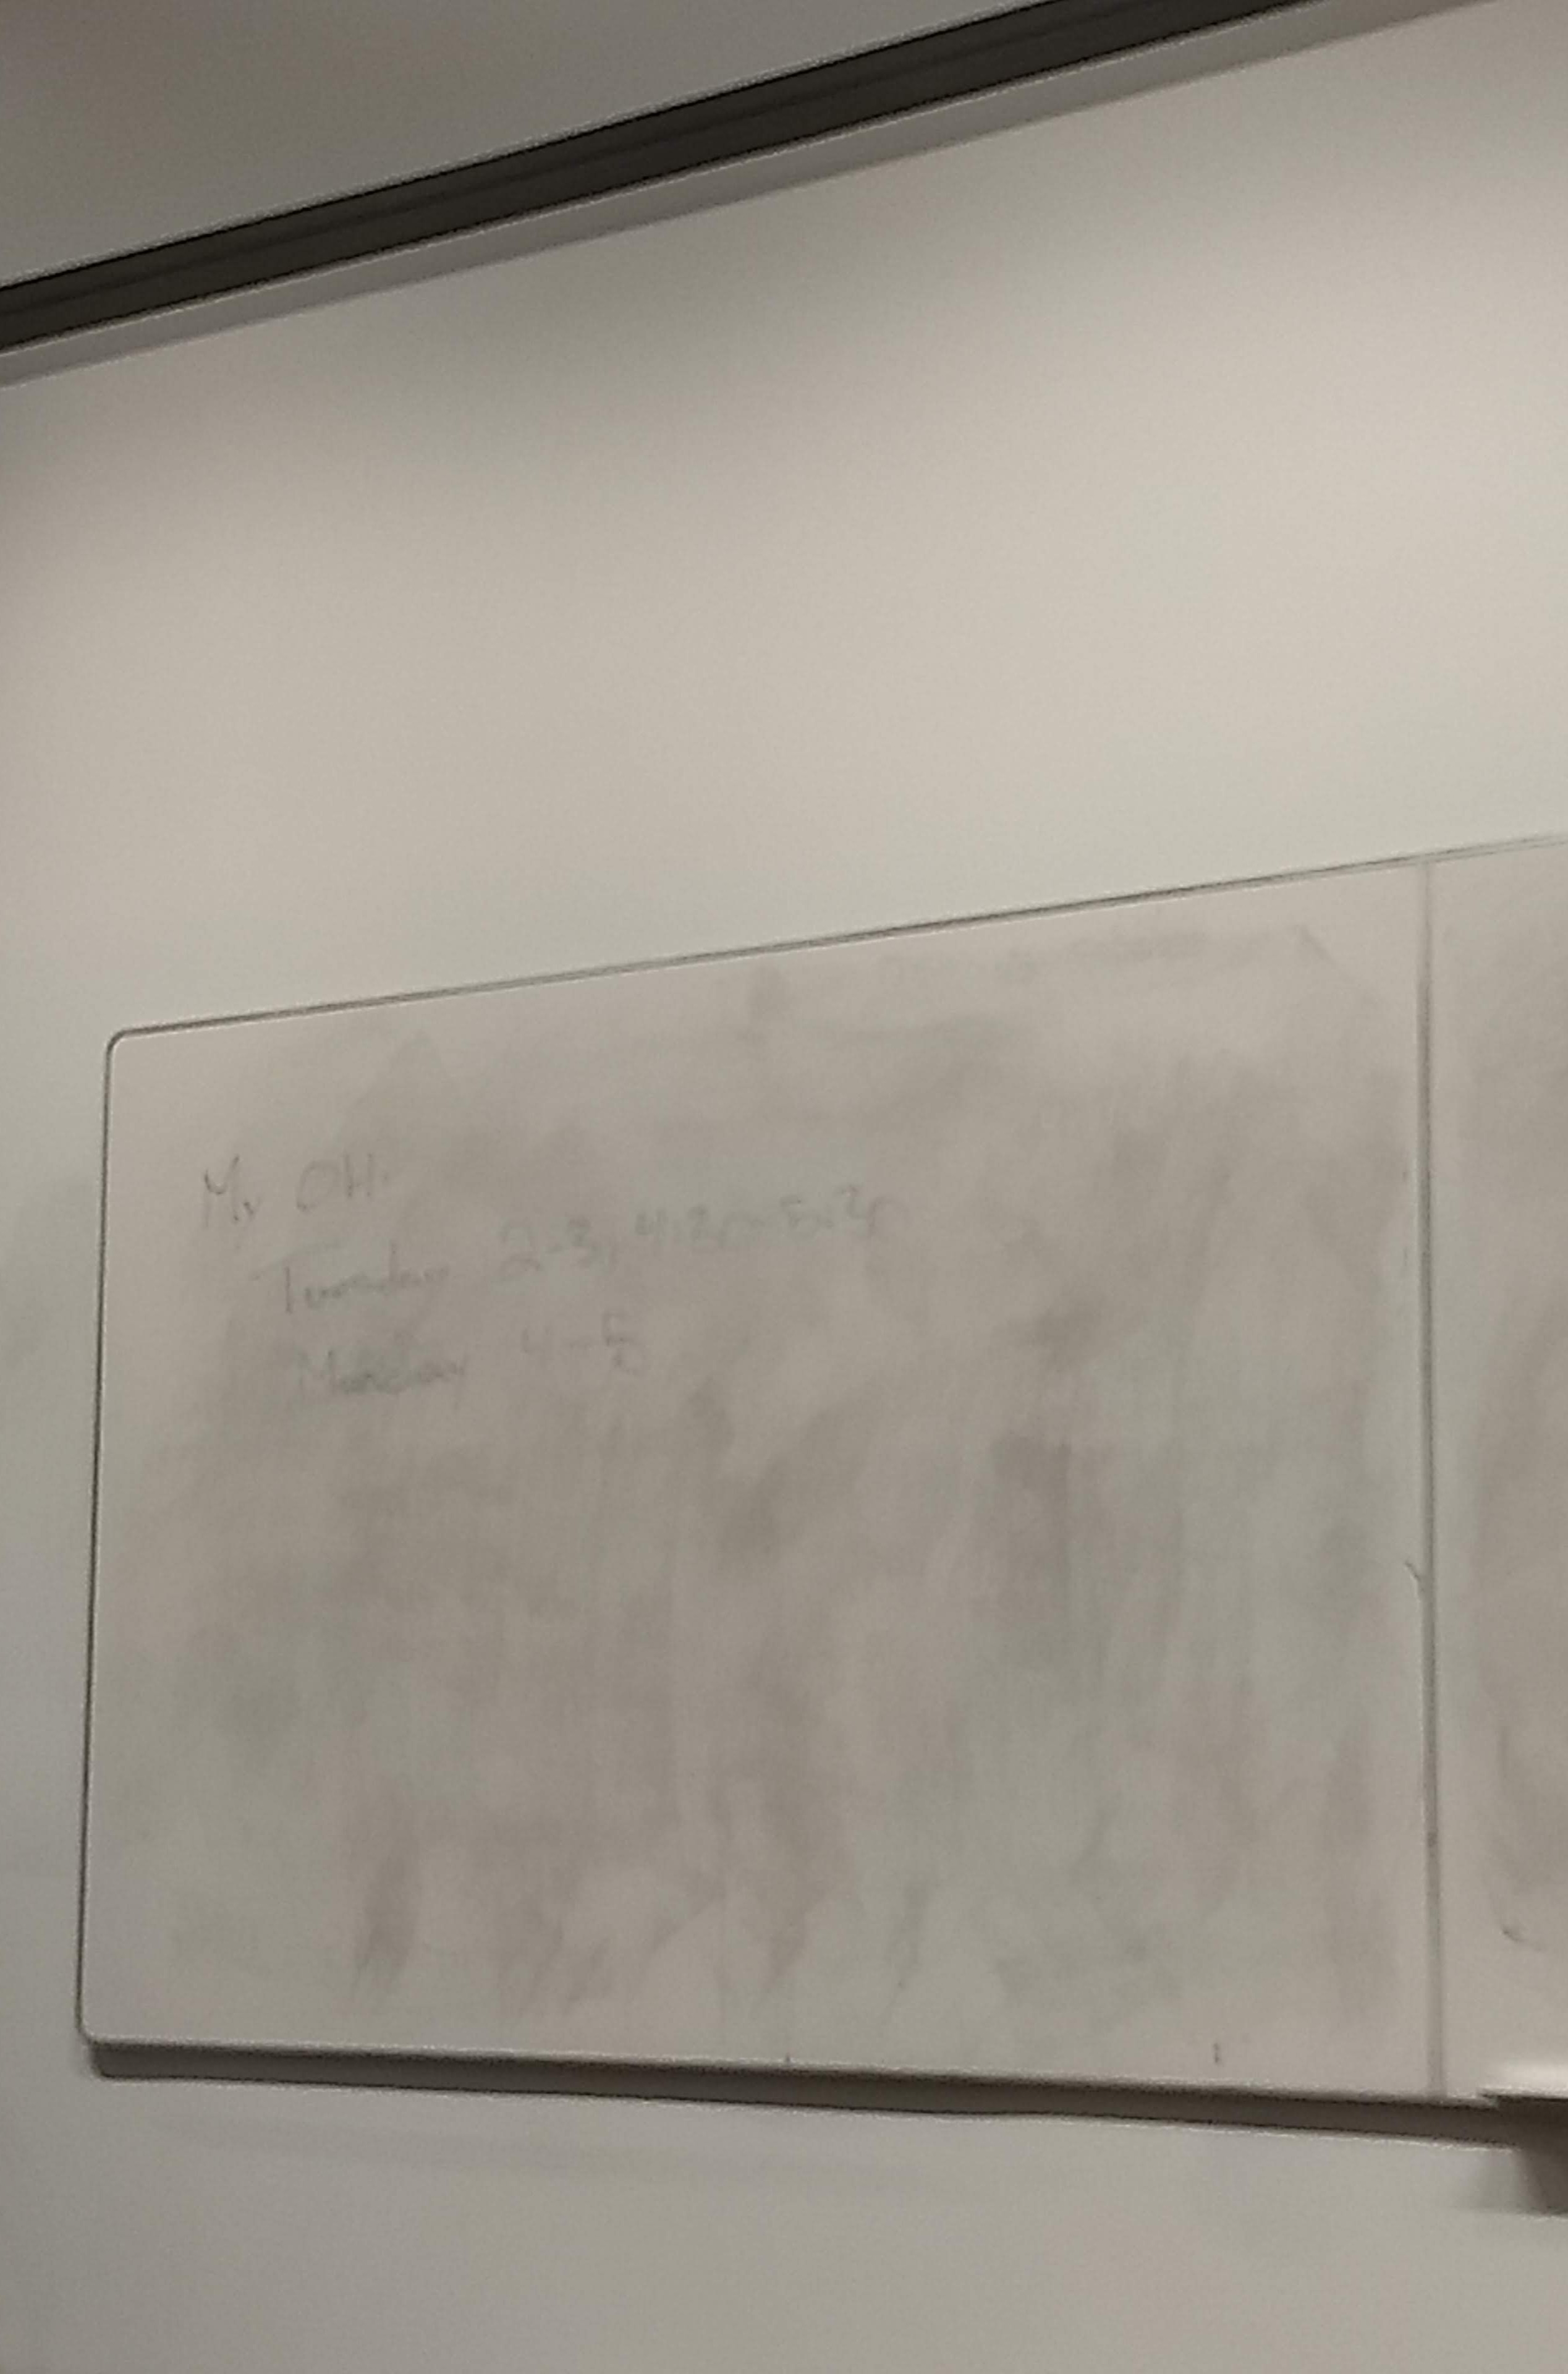 My OH.
Tuesday 2-3, 4:30-5:30
Monday 4-5